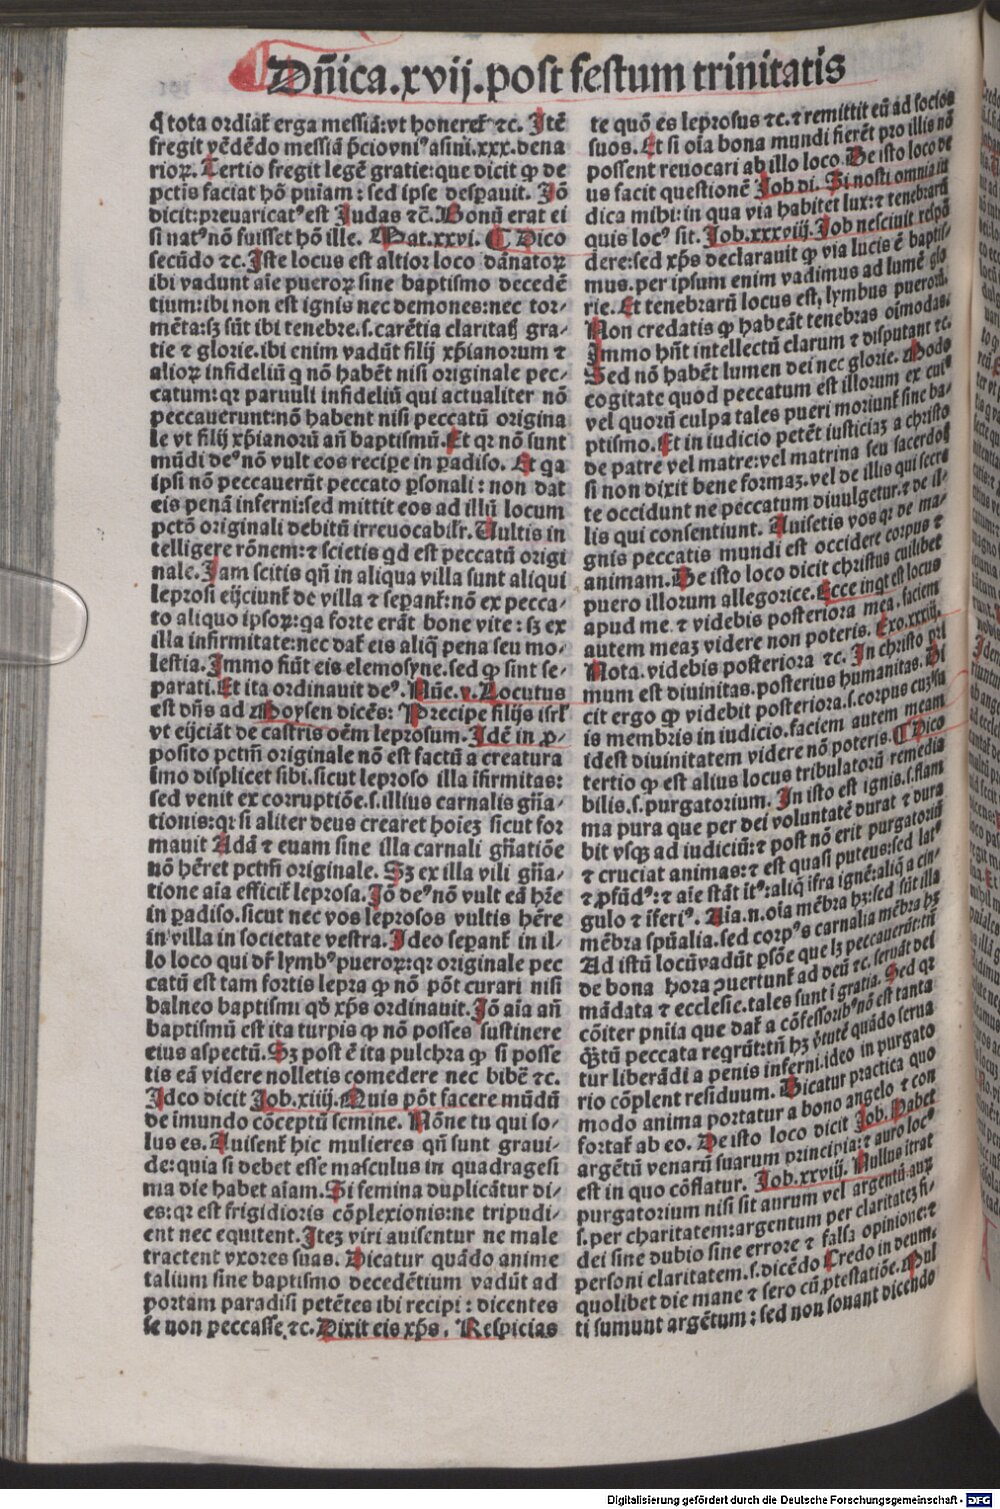 Dñica.xvij.post festum trinitatis
q̃ tota ordiat᷑ erga messiã:vt honeret᷑ ⁊c. Itẽ
fregit vẽdẽdo messiã p̃ciovniꝰ asini.xxx.dena
rioꝝ. Tertio fregit legẽ gratie:que dicit ꝙ de
pctis faciat hõ pniam: sed ipse despauit. Iõ
dicit:preuaricatꝰest Judas ⁊c̃.Bonũ erat ei
si natꝰnõ fuisset hõ ille. Mat.xxvi. ¶ Dico
secũdo ⁊c.Iste locus est altior loco dãnatoꝝ
ibi vadunt aĩe pueroꝝ sine baptismo decedẽ
tium:ibi non est ignis nec demones:nec tor⸗
mẽta:sꝫ sũt ibi tenebre.s.carẽtia claritatꝭ gra⸗
tie ⁊ glorie.ibi enim vadũt filij xp̃ianorum ⁊
alioꝝ infideliũ q̃ nõ habẽt nisi originale pec⸗
catum:qꝛ paruuli infideliũ qui actualiter nõ
peccauerunt:nõ habent nisi peccatũ origina
le vt filij xp̃ianorũ añ baptismũ.Et qꝛ nõ sunt
mũdi deꝰnõ vult eos recipe in padiso. Et qa
ipsi nõ peccauerũt peccato psonali: non dat
eis penã inferni:sed mittit eos ad illũ locum
pctõ originali debitũ irreuocabilr̃.Vultis in
telligere rõnem:⁊ scietis qd est peccatũ origi
nale.Jam scitis qñ in aliqua villa sunt aliqui
leprosi eijciunt᷑ de villa ⁊ sepant᷑:nõ ex pecca⸗
to aliquo ipsoꝝ:qa forte erãt bone vite: sꝫ ex
illa infirmitate:nec dat᷑ eis aliq̃ pena seu mo⸗
lestia.Immo fiũt eis elemosyne.sed ꝙ sint se⸗
parati.Et ita ordinauit deꝰ.Nũe.v.Locutus
est dñs ad Moysen dicẽs: Precipe filijs isrl̃
vt eijciãt de castris oẽm leprosum.Idẽ in p⸗
posito pctm̃ originale nõ est factũ a creatura
imo displicet sibi.sicut leproso illa ĩfirmitas:
sed venit ex corruptiõe.s.illius carnalis gña⸗
tionis:qꝛ si aliter deus crearet hoieꝫ sicut for
mauit Adã ⁊ euam sine illa carnali gñatiõe
nõ hẽret pctm̃ originale. Sꝫ ex illa vili gña⸗
tione aĩa efficit᷑ leprosa.Iõ deꝰnõ vult eã hr̃e
in padiso.sicut nec vos leprosos vultis hẽre
in villa in societate vestra.Ideo sepant᷑ in il⸗
lo loco qui dr̃ lymbꝰpueroꝝ:qꝛ originale pec
catũ est tam fortis lepra ꝙ nõ põt curari nisi
balneo baptismi qd̃ xp̃s ordinauit.Iõ aĩa añ
baptismũ est ita turpis ꝙ nõ posses sustinere
eius aspectũ.Sꝫ post ẽ ita pulchra ꝙ si posse
tis eã videre nolletis comedere nec bibẽ ⁊c.
Ideo dicit Job.xiiij.Quis põt facere mũdũ
de imundo cõceptũ semine. Nõne tu qui so⸗
lus es.Auisent᷑ hic mulieres qñ sunt graui⸗
de:quia si debet esse masculus in quadragesi
ma die habet aĩam.Si femina duplicãtur di⸗
es:qꝛ est frigidioris cõplexionis:ne tripudi⸗
ent nec equitent.Iteꝫ viri auisentur ne male
tractent vxores suas. Dicatur quãdo anime
talium sine baptismo decedẽtium vadũt ad
portam paradisi petẽtes ibi recipi: dicentes
se non peccasse ⁊c.Dixit eis xp̃s. Respicias
te quõ es leprosus ⁊c.⁊ remittit eũ ad socios
suos. Et si oĩa bona mundi fierẽt pro illis nõ
possent reuocari ab illo loco.De isto loco de
us facit questionẽ Job di. Si nosti omnia in
dica mihi: in qua via habitet lux:⁊ tenebrarũ
quis locꝰ sit. Job.xxxviij.Job nesciuit respõ
dere:sed xp̃s declarauit ꝙ via lucis ẽ baptis
mus.per ipsum enim vadimus ad lumẽ glo
rie. Et tenebrarũ locus est, lymbus pueroꝝ.
Non credatis ꝙ habeãt tenebras oĩmodas.
Immo hñt intellectũ clarum ⁊ disputant ⁊c.
Sed nõ habẽt lumen dei nec glorie. Modo
cogitate quod peccatum est illorum ex cuiꝰ
vel quorũ culpa tales pueri moriunt᷑ sine ba⸗
ptismo.Et in iudicio petẽt iusticiaꝫ a christo
de patre vel matre:vel matrina seu sacerdoꝭ
si non dixit bene formaꝫ.vel de illis qui secre
te occidunt ne peccatum diuulgetur.⁊ de il⸗
lis qui consentiunt. Auisetis vos qꝛ de ma⸗
gnis peccatis mundi est occidere corpus ⁊
animam.De isto loco dicit christus cuilibet
puero illorum allegorice.Ecce inqt est locus
apud me. ⁊ videbis posteriora mea. faciem
autem meaꝫ videre non poteris. Exo.xxxiij.
Nota.videbis posteriora ⁊c. In christo pri
mum est diuinitas.posterius humanitas. Di
cit ergo ꝙ videbit posteriora.s.corpus cuꝫ su
is membris in iudicio.faciem autem meam
idest diuinitatem videre nõ poteris.¶ Dico
tertio ꝙ est alius locus tribulatorũ remedia
bilis.s.purgatorium. In isto est ignis.s.flam
ma pura que per dei voluntatẽ durat ⁊ dura
bit vsqꝫ ad iudiciũ:⁊ post nõ erit purgatoriũ
⁊ cruciat animas:⁊ est quasi puteus:sed latꝰ
⁊ pfũdꝰ:⁊ aĩe stãt itꝰ:aliq̃ ifra ignẽ:aliq̃ a cin⸗
gulo ⁊ ĩferiꝰ. Aĩa.n.oĩa mẽbra hꝫ:sed sũt illa
mẽbra spũalia.sed corpꝰs carnalia mẽbra hꝫ
Ad istũ locũvadũt psõe que lꝫ peccauerũt:tñ
de bona hora ꝯuertunt᷑ ad deũ ⁊c.seruãt dei
mãdata ⁊ ecclesie.tales sunt ĩ gratia. Sed qꝛ
cõiter pniia que dat᷑ a cõfessoribꝰnõ est tanta
q̃ꝫtũ peccata reqrũt:tñ hꝫ ꝟtutẽ quãdo serua
tur liberãdi a penis inferni.ideo in purgato
rio cõplent residuum. Dicatur practica quo
modo anima portatur a bono angelo ⁊ con
fortat᷑ ab eo. De isto loco dicit Job. Habet
argẽtũ venarũ suarum principia:⁊ auro locꝰ
est in quo cõflatur. Job.xxviij. Nullus itrat
purgatorium nisi sit aurum vel argentũ.auꝝ
s.per charitatem:argentum per claritateꝫ fi⸗
dei sine dubio sine errore ⁊ falsa opinione:⁊
personi claritatem.s.dicẽdo Credo in deum.
quolibet die mane ⁊ sero cũ ptestatiõe. Mul
ti sumunt argẽtum: sed non sonant dicendo
Digitalisierung gefördert durch die Deutsche Forschungsgemeinschaft - DFG